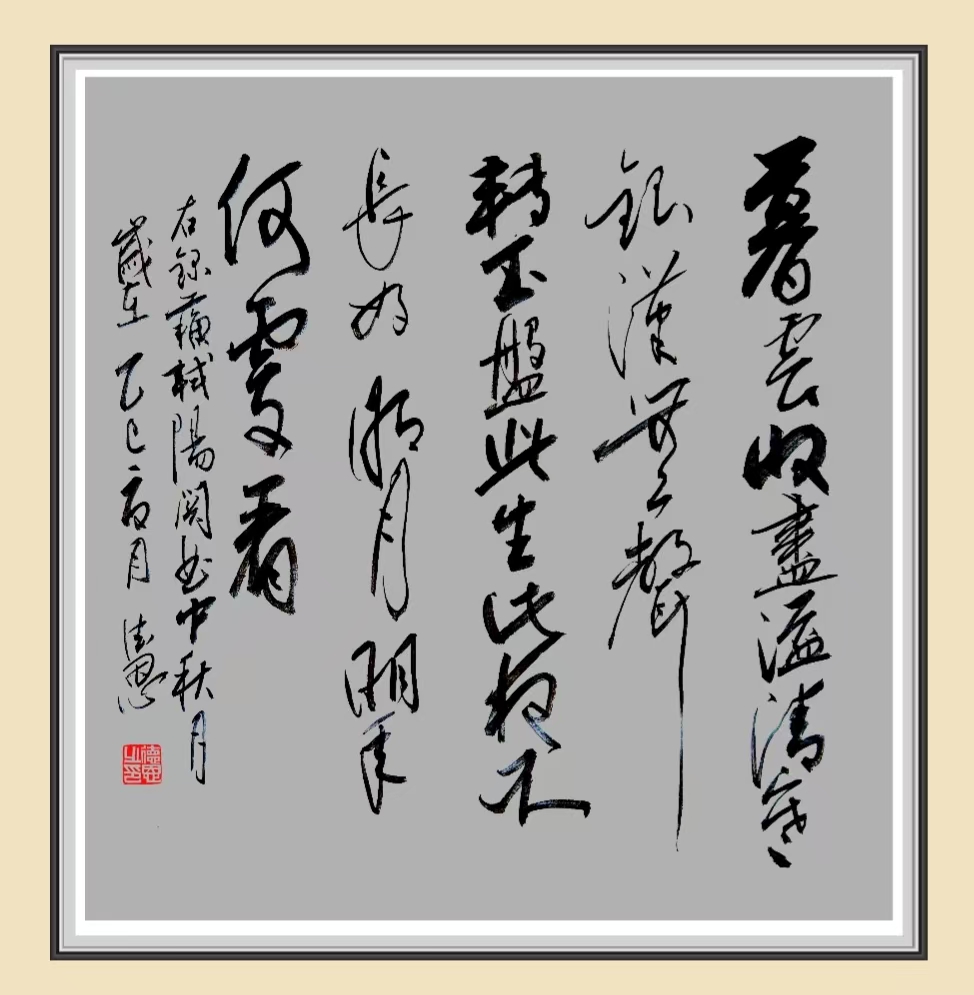 暮雲收盡溢清寒
銀漢無聲
轉玉盤此生此夜不
長好明月明年
何處看
右錄蘇軾陽關曲中秋月
歲在乙巳夏月